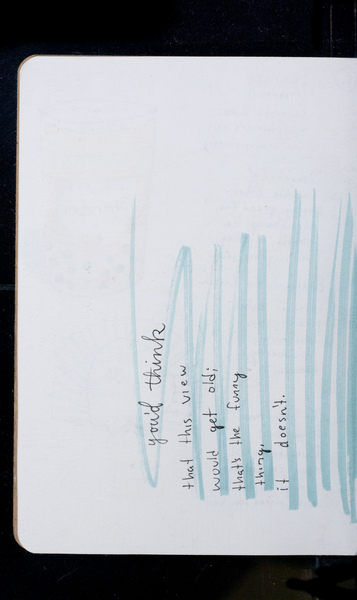 you'd think
that this view
would get old;
that's the funny
thing,
it doesn't.